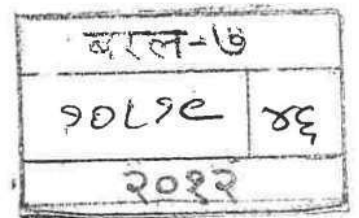 बरल-७
१०८१९ ४६
२०१२